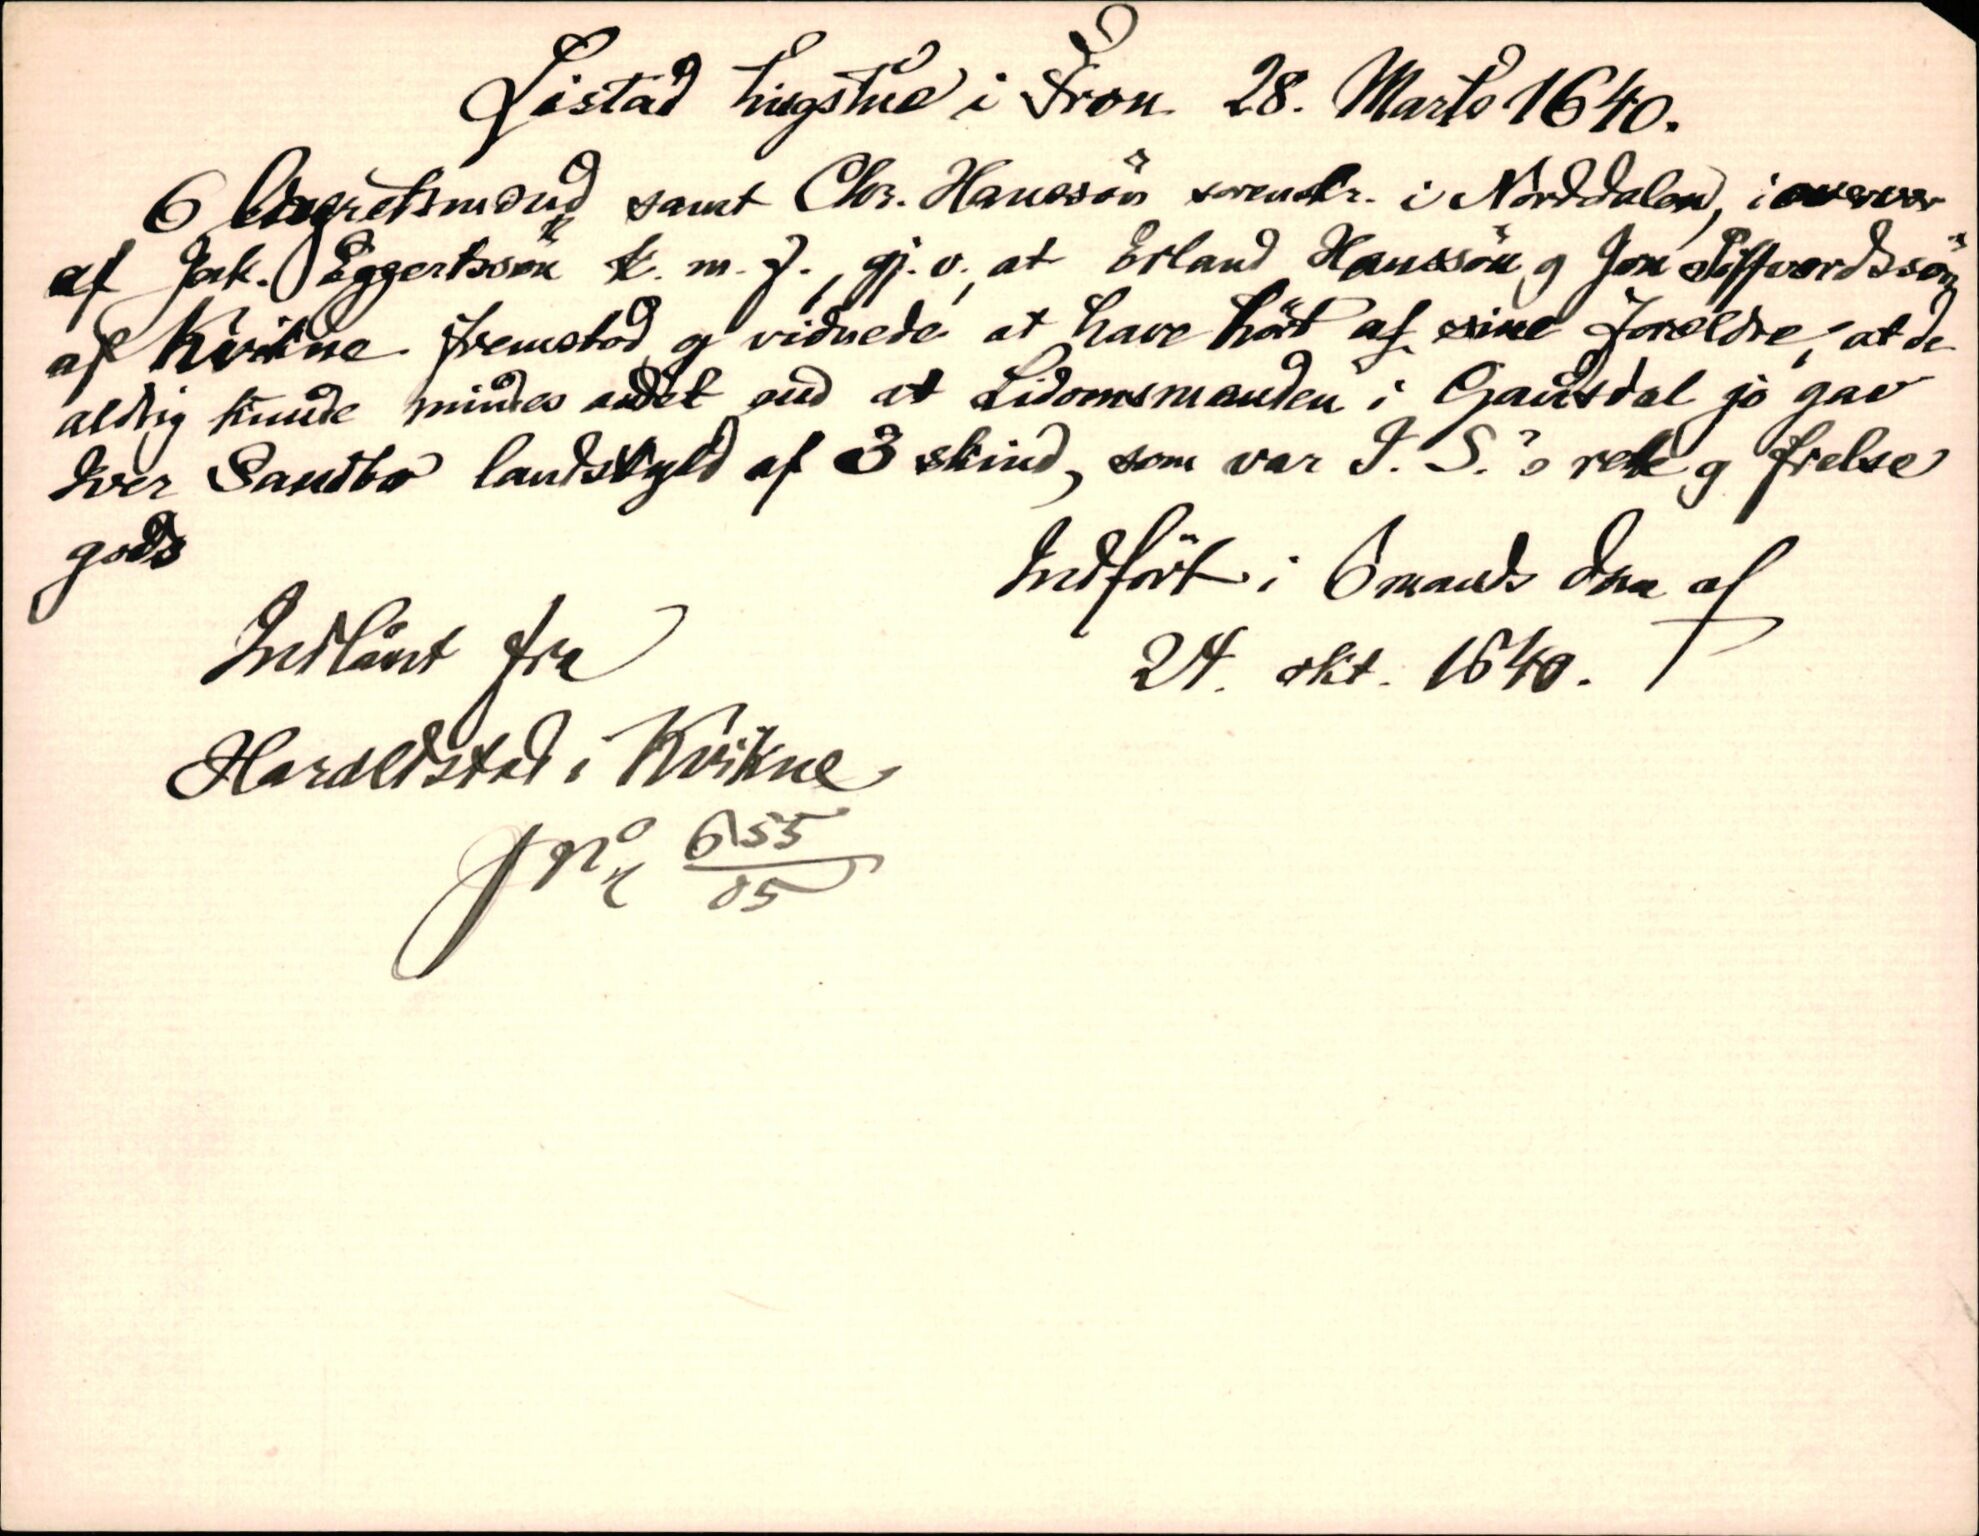 Listad tingstue i Fron 28. Marts 1640.
6 lagretsmænd samt Chr. Hanssön sorenskr. i Norddalen, i overver
af Jak. Eggertssön k. m. f., gj. v., at Erland Hanssön og Jon Siffverdssön
af Kvikne fremstod og vidnede at have hört af sine foreldre, at de
aldrig kunde mindes andet end at Lidomsmanden i Gausdal jo gav
Iver Sandbo landskyld af 3 skind, som var I. S.'s rette og frelse
gods
Indfört i 6 mands dom af
24. okt. 1640.
Indlånt fra
Haraldstad i Kvikne
J No 655/05